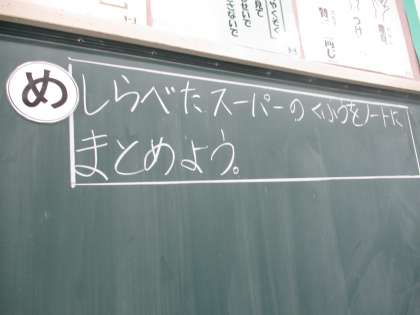 め
しらべたスーパーのくふうをノートに
まとめよう。